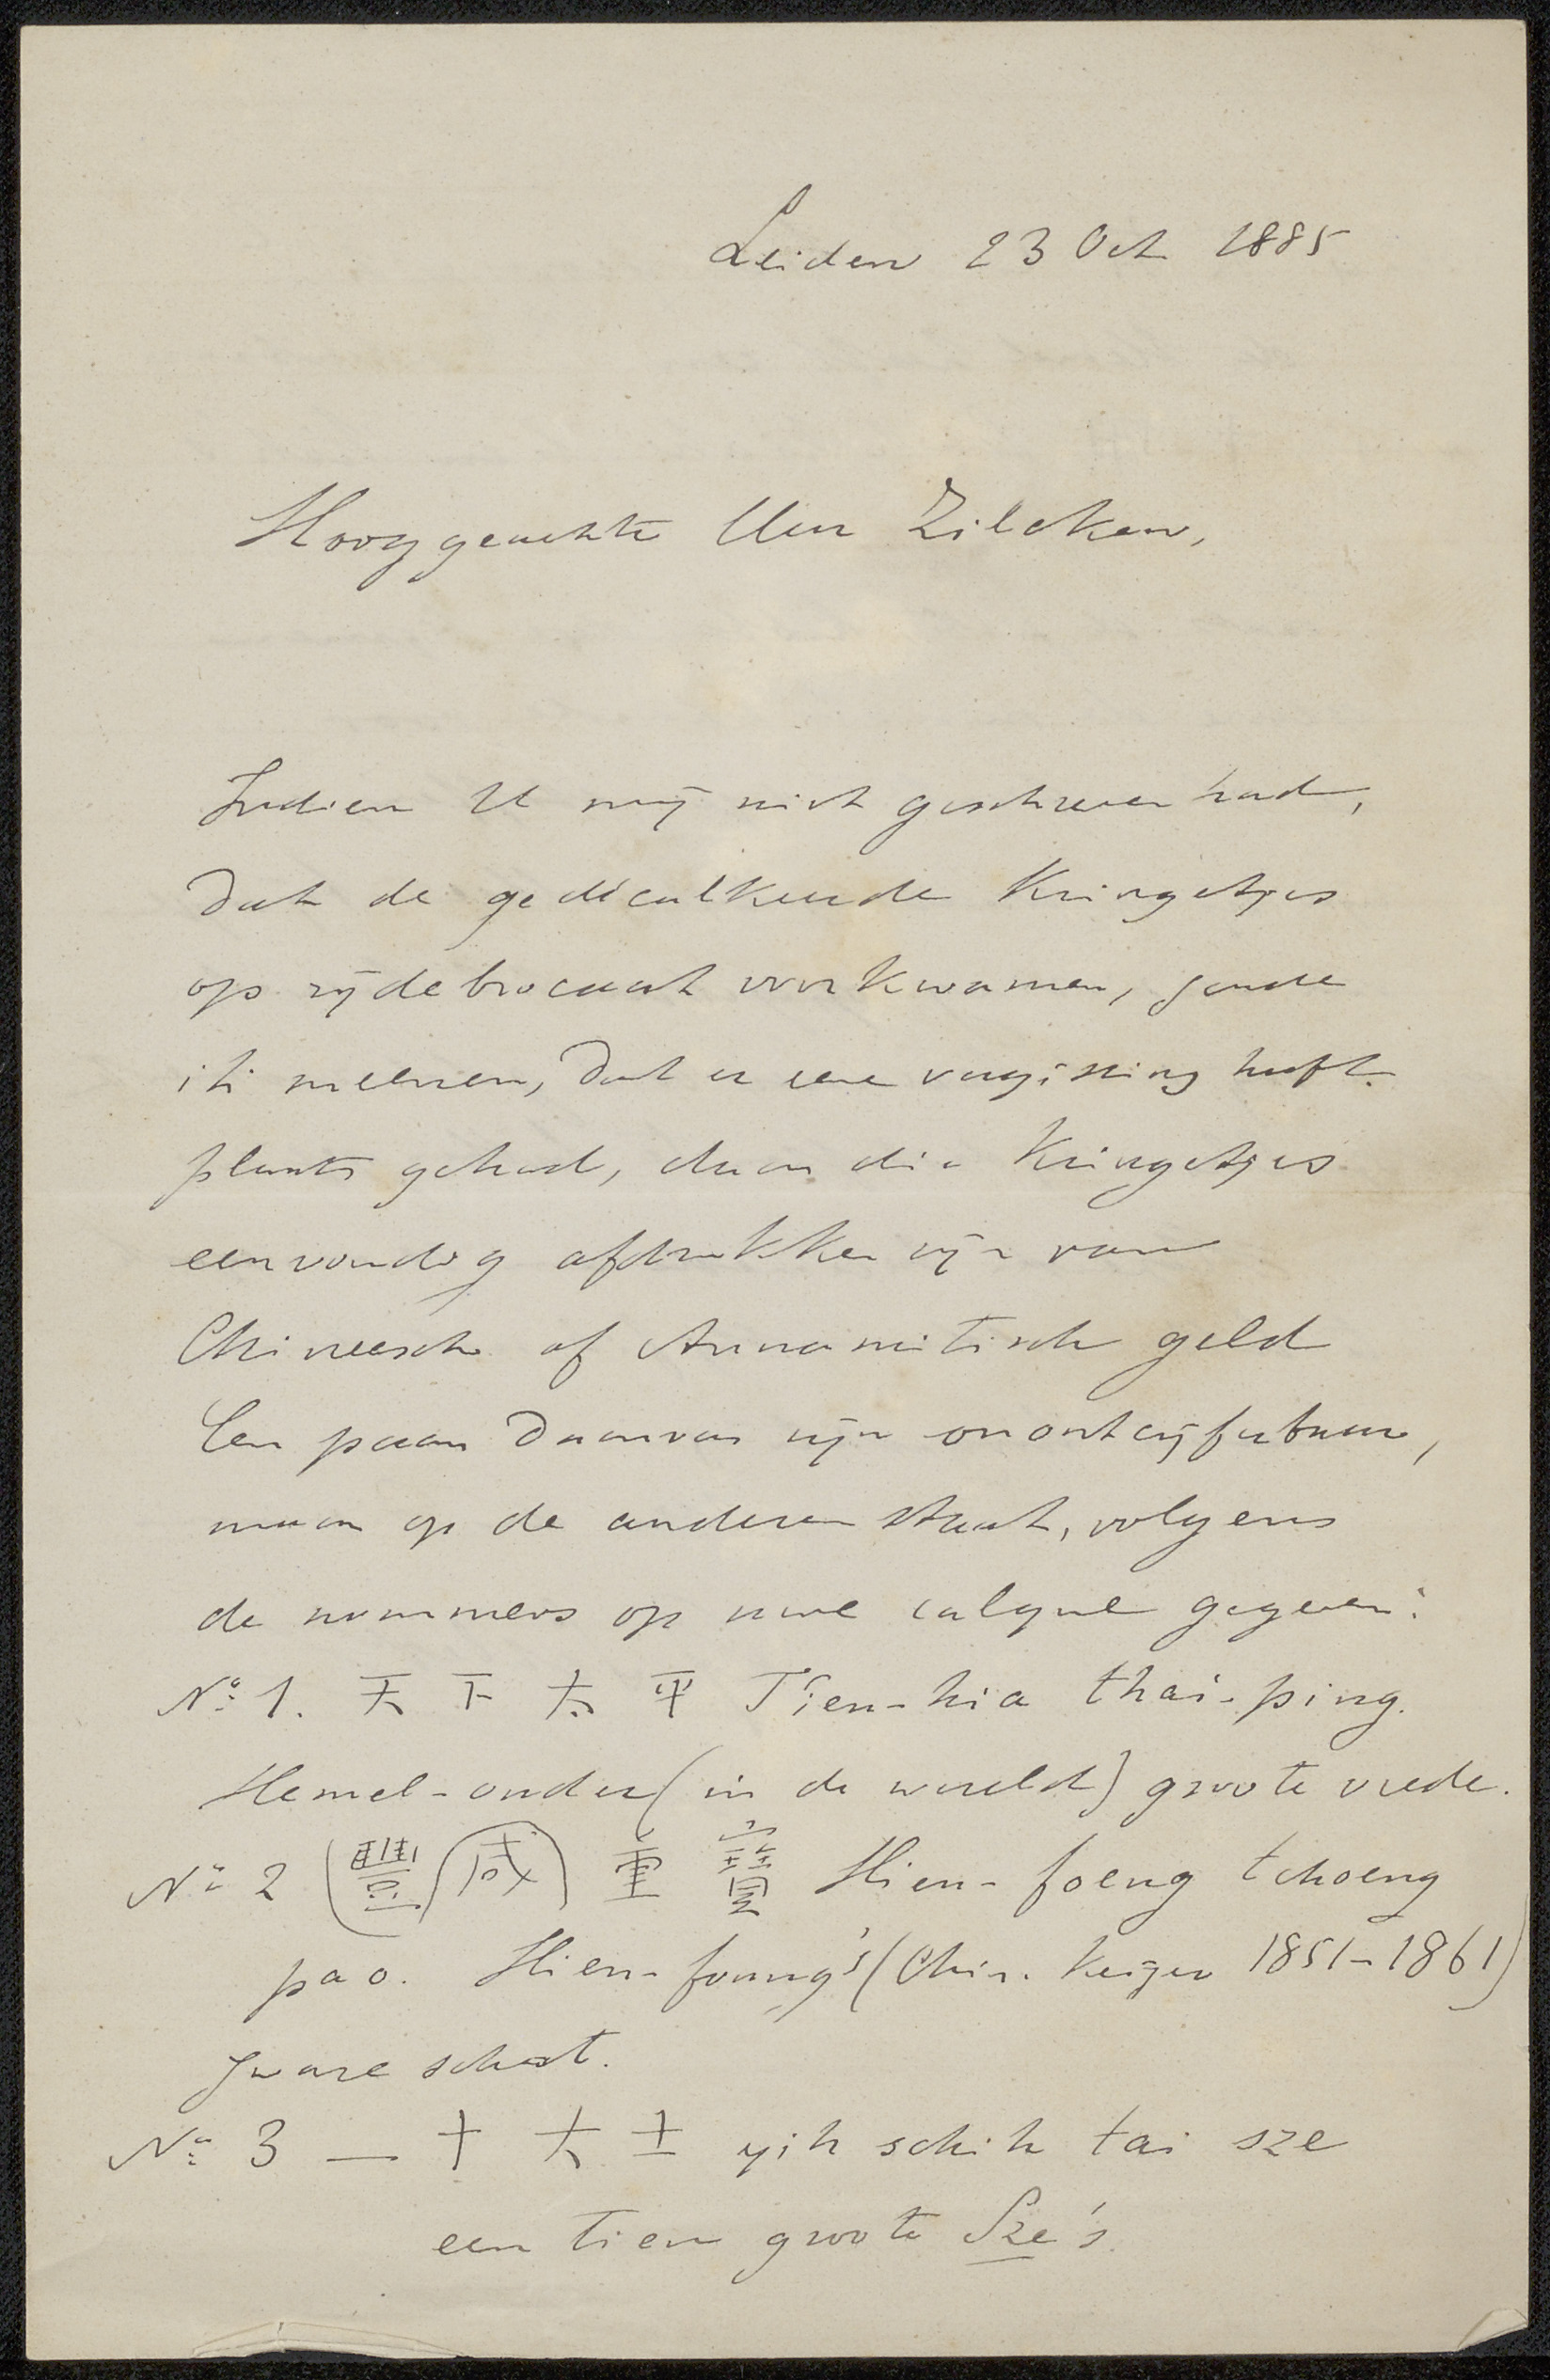 Leiden 23 Oct 1885
Hooggeachte Heer Zilcken,
Indien U mij niet geschreven had,
dat de gedécalkeerde Kringetjes
op zijdebrocaat voorkwamen, zoude
ik meenen, dat er eene vergissing heeft
plaats gehad, daar die Kringetjes
eenvoudig afdrukken zijn van
Chineesch of Annamitisch geld
Een paar daarvan zijn onontcijferbaar,
maar op de anderen staat, volgens
de nommers op uwe calque gegeven:
No. 1. 天 下 太 平 T'ien-hia thai-ping.
Hemel-onder (in de wereld) groote vrede.
No. 2 (豐 (咸) 重 寶 Hien-foeng tchoeng
pao. Hien-foung's (Chin. Keizer 1851-1861)
zware schat.
No. 3 一 十 大 士 yih schih tai sze
een tien groote Sze's.